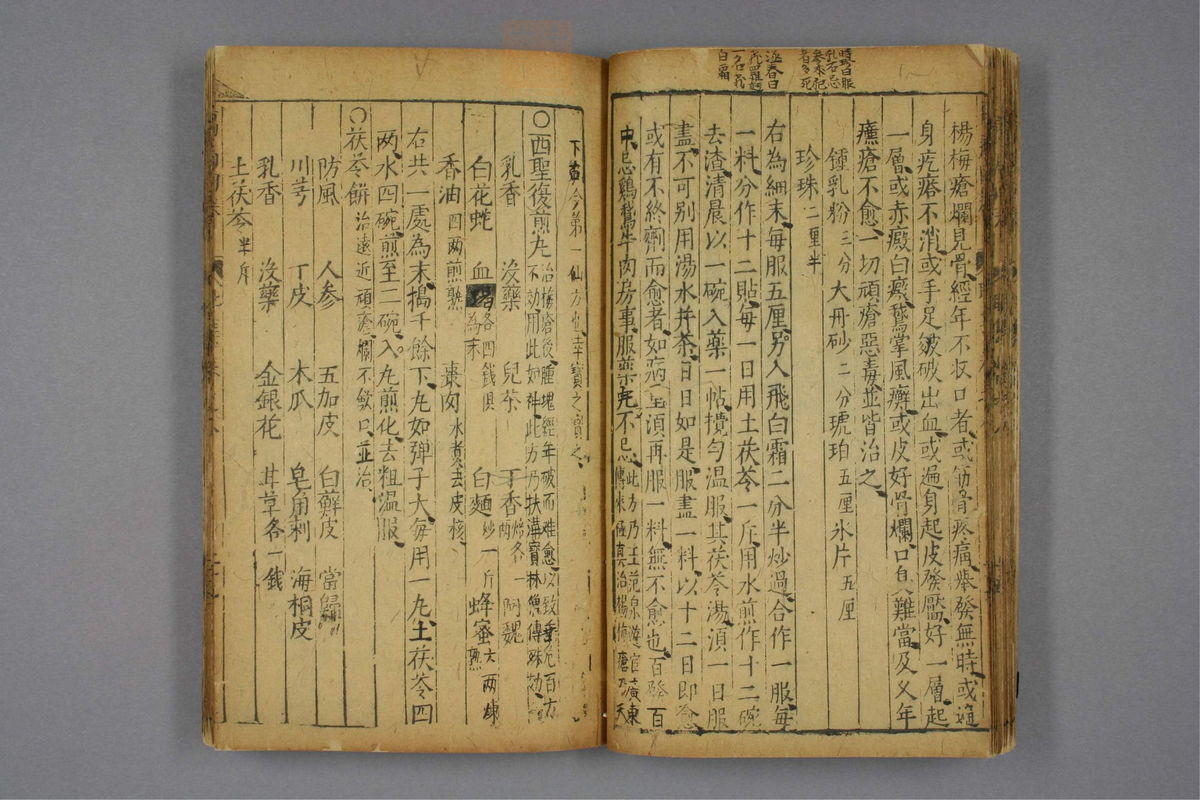 時珍曰服
乳石忌
參朮犯
者多死
一名
白霜
楊梅瘡爛見骨經年不收口者或筋骨疼痛舉發無時或遍
身疙瘩不消或手足皴破出血或遍身起皮發靨好一層起
一層或赤癜白癜鵞掌風癬或皮好骨爛口臭難當及久年
臁瘡不愈一切頑瘡惡毒並皆治之
鍾乳粉三分 大丹砂二分 琥珀五厘 氷片五厘
珍珠二厘半
右為細末每服五厘另入飛白霜二分半炒過合作一服每
一料分作十二貼每一日用土茯苓一斤用水煎作十二碗
去渣清晨以一碗入藥一帖攪勻溫服其茯苓湯湏一日服
盡不可别用湯水并茶日日如是服盡一料以十二日即愈
或有不終劑而愈者如病重湏再服一料無不愈也百發百
中忌鷄鵞牛肉房事服藥完不忌此方乃
傳來極真治楊梅瘡乃天
下古今第一仙方也幸寶之寶之
○西聖復煎丸治楊瘡後腫塊經年破而难愈以致垂危百方
不効用此如神此方乃扶溝寳林僧傳殊効
乳香 沒藥 兒茶 丁香焙各一兩 阿魏
白花蛇 血竭各四錢俱為末 白麵炒一斤 蜂蜜六兩煉熟
香油四兩煎熟 棗肉水煑去皮核
右共一處為末搗千餘下丸如彈子大每用一丸土茯苓四
两水四碗煎至二碗入丸煎化去粗溫服
○茯苓餅治遠近頑瘡爛不斂口並治
防風 人参 五加皮 白蘚皮 當歸
川芎 丁皮 木瓜 皂角刺 海桐皮
乳香 沒藥 金銀花 甘草各一錢
土茯苓半斤